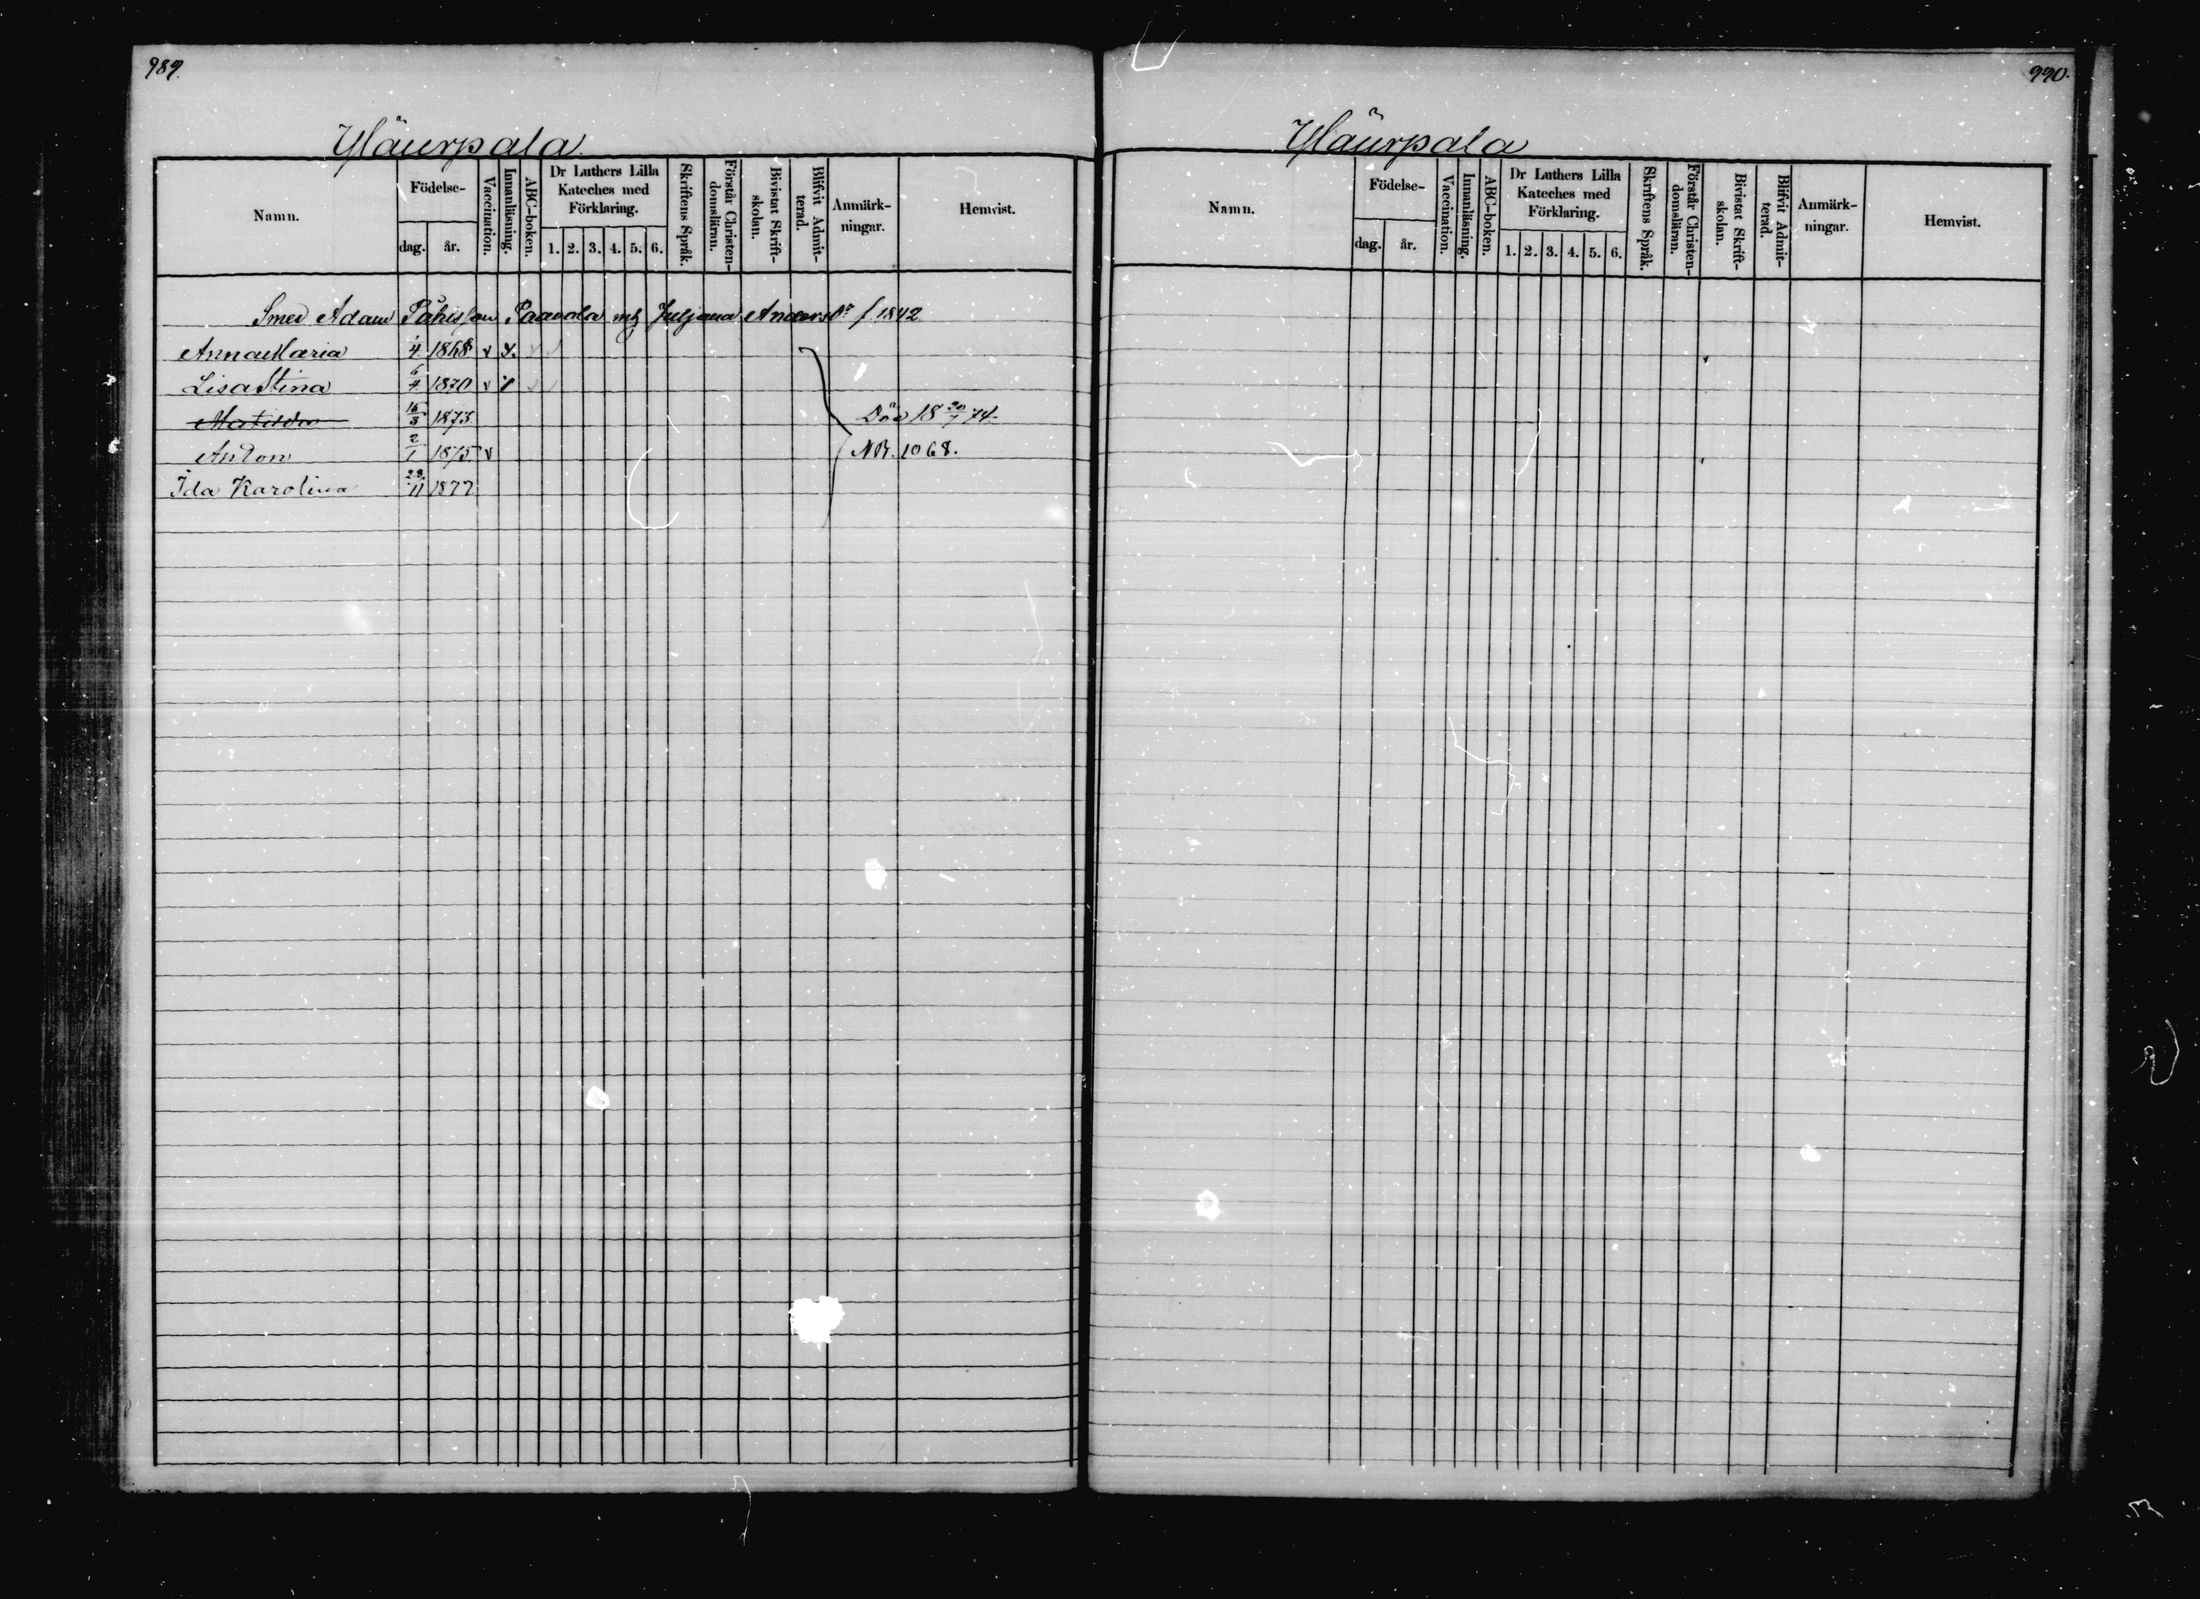 989.
Yläurpala
Namn. Födelse- dag. år. Vaccination. Innanläsning. ABC-boken. Dr Luthers Lilla Kateches med Förklaring. 1. 2. 3. 4. 5. 6. Skriftens Språk. Förstår Christen-domsläran. Bivistat Skrift-skolan. Blifvit Admit-terad. Anmärk-ningar. Hemvist.
Smed Adam Paavola Juljana Anders Dr f 1842
Anna Maria 4 1868 v
Lisa Stina 6/4 1870 v
Matilda 15/3 1873 Död 18 20/1 74.
Anton 2/1 1875 v NB. 1068.
Ida Karolina 28/11 1877
990.
Yläurpala
Namn. Födelse- dag. år. Vaccination. Innanläsning. ABC-boken. Dr Luthers Lilla Kateches med Förklaring. 1. 2. 3. 4. 5. 6. Skriftens Språk. Förstår Christen-domsläran. Bivistat Skrift-skolan. Blifvit Admit-terad. Anmärk-ningar. Hemvist.